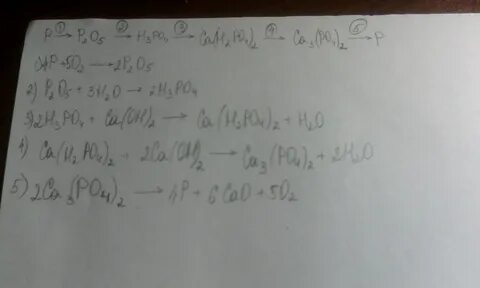 P ①→ P₂O₅ ②→ H₃PO₄ ③→ Ca(H₂PO₄)₂ ④→ Ca₃(PO₄)₂ ⑤→ P
1) 4P + 5O₂ → 2P₂O₅
2) P₂O₅ + 3H₂O → 2H₃PO₄
3) 2H₃PO₄ + Ca(OH)₂ → Ca(H₂PO₄)₂ + H₂O
4) Ca(H₂PO₄)₂ + 2Ca(OH)₂ → Ca₃(PO₄)₂ + 2H₂O
5) 2Ca₃(PO₄)₂ → 4P + 6CaO + 5O₂